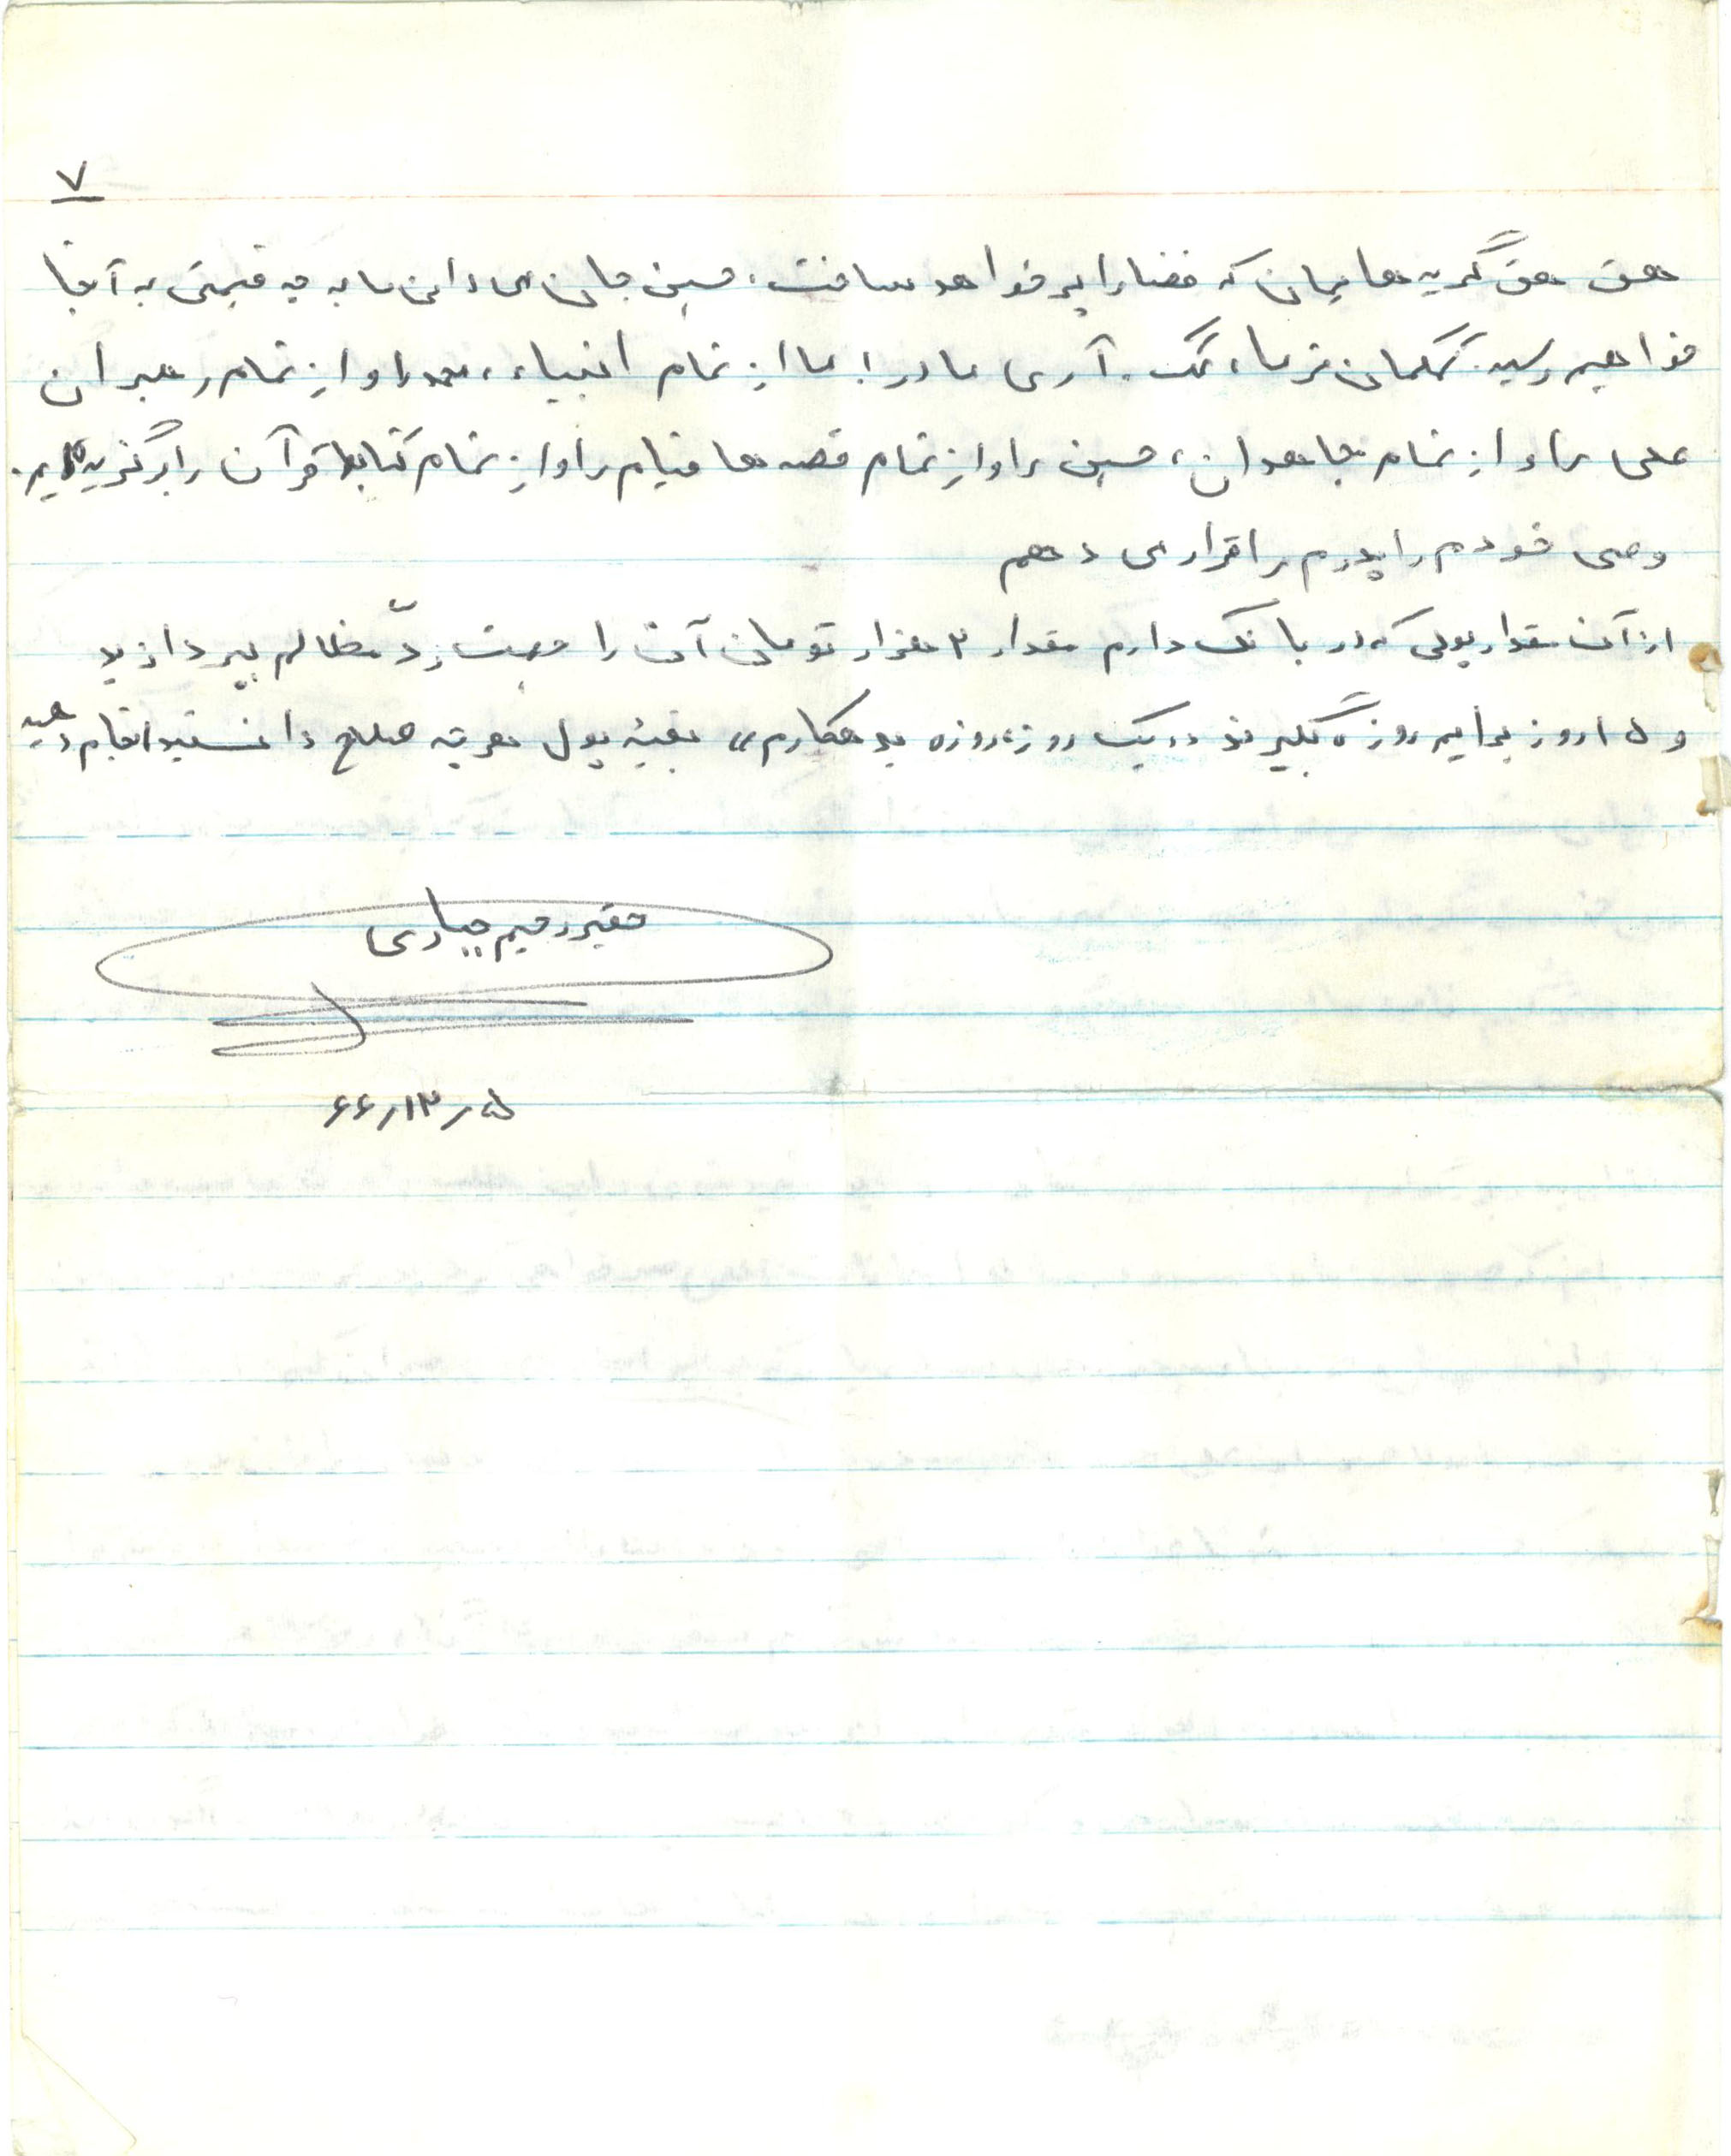 ۷
هق هق گریه هایمان که فضا را پر خواهد ساخت، حسین جان می دانی ما به چه قیمتی به آنجا
خواهیم رسید. کمکمان نما، کمک. آری مادر! ما از تمام انبیاء، محمد را و از تمام رهبران
علی را و از تمام مجاهدان، حسین را و از تمام قصه ها قیام را و از تمام کتابها قرآن را برگزیده ایم.
وصی خودم را پدرم را قرار می دهم
از آن مقدار پولی که در بانک دارم مقدار ۲ هزار تومان آن را جهت ردّ مظالم بپردازید
و ۱۵ روز برایم روزه بگیرند در یک روزه بدهکارم، بقیهٔ پول هر چه صلاح دانستید انجام دهید
حقیر رحیم جباری
۶۶/۱۲/۵